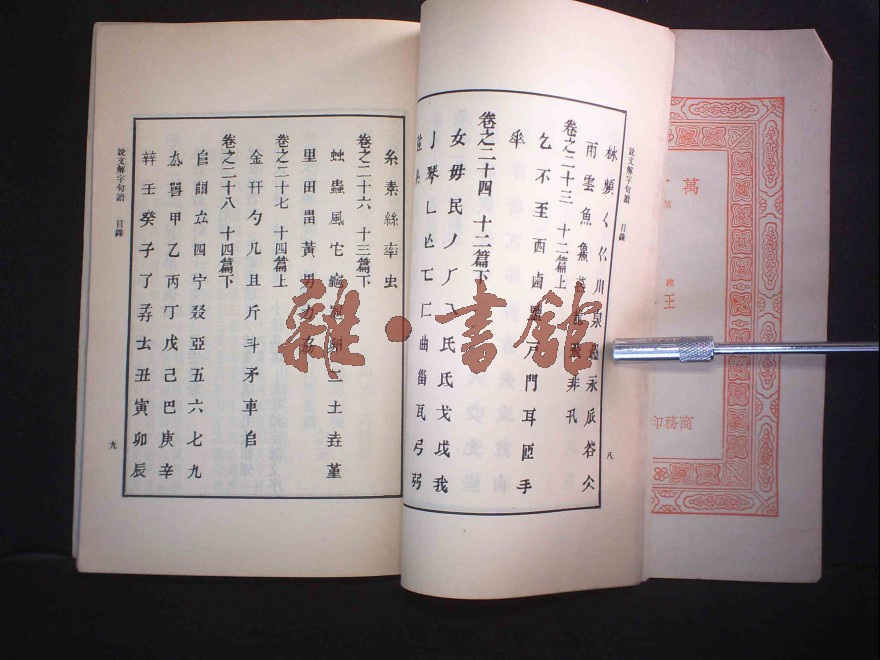 說文解字句讀 目錄 八
沝 瀕 𡿨 巜 川 泉 灥 永 𠂢 谷 仌
雨 雲 魚 𩺰 燕 龍 飛 非 卂
卷之二十三 十二篇上
乞 不 至 西 鹵 鹽 戶 門 耳 𦣞 手
𠦬
卷之二十四 十二篇下
女 毋 民 丿 𠂆 乁 氏 氐 戈 戉 我
亅 琴 乚 亾 匸 匚 曲 甾 瓦 弓 弜
糸 素 絲 率 虫
卷之二十六 十三篇下
䖵 蟲 風 它 龜 黽 卵 二 土 垚 堇
里 田 畕 黃 男 力 劦
卷之二十七 十四篇上
金 幵 勺 几 且 斤 斗 矛 車 𠂤
卷之二十八 十四篇下
𨸏 𨺅 厽 四 宁 叕 亞 五 六 七 九
禸 嘼 甲 乙 丙 丁 戊 己 巴 庚 辛
辡 壬 癸 子 了 孨 𠫓 丑 寅 卯 辰
說文解字句讀 目錄 九
萬
第
王
商務印
雜·書館